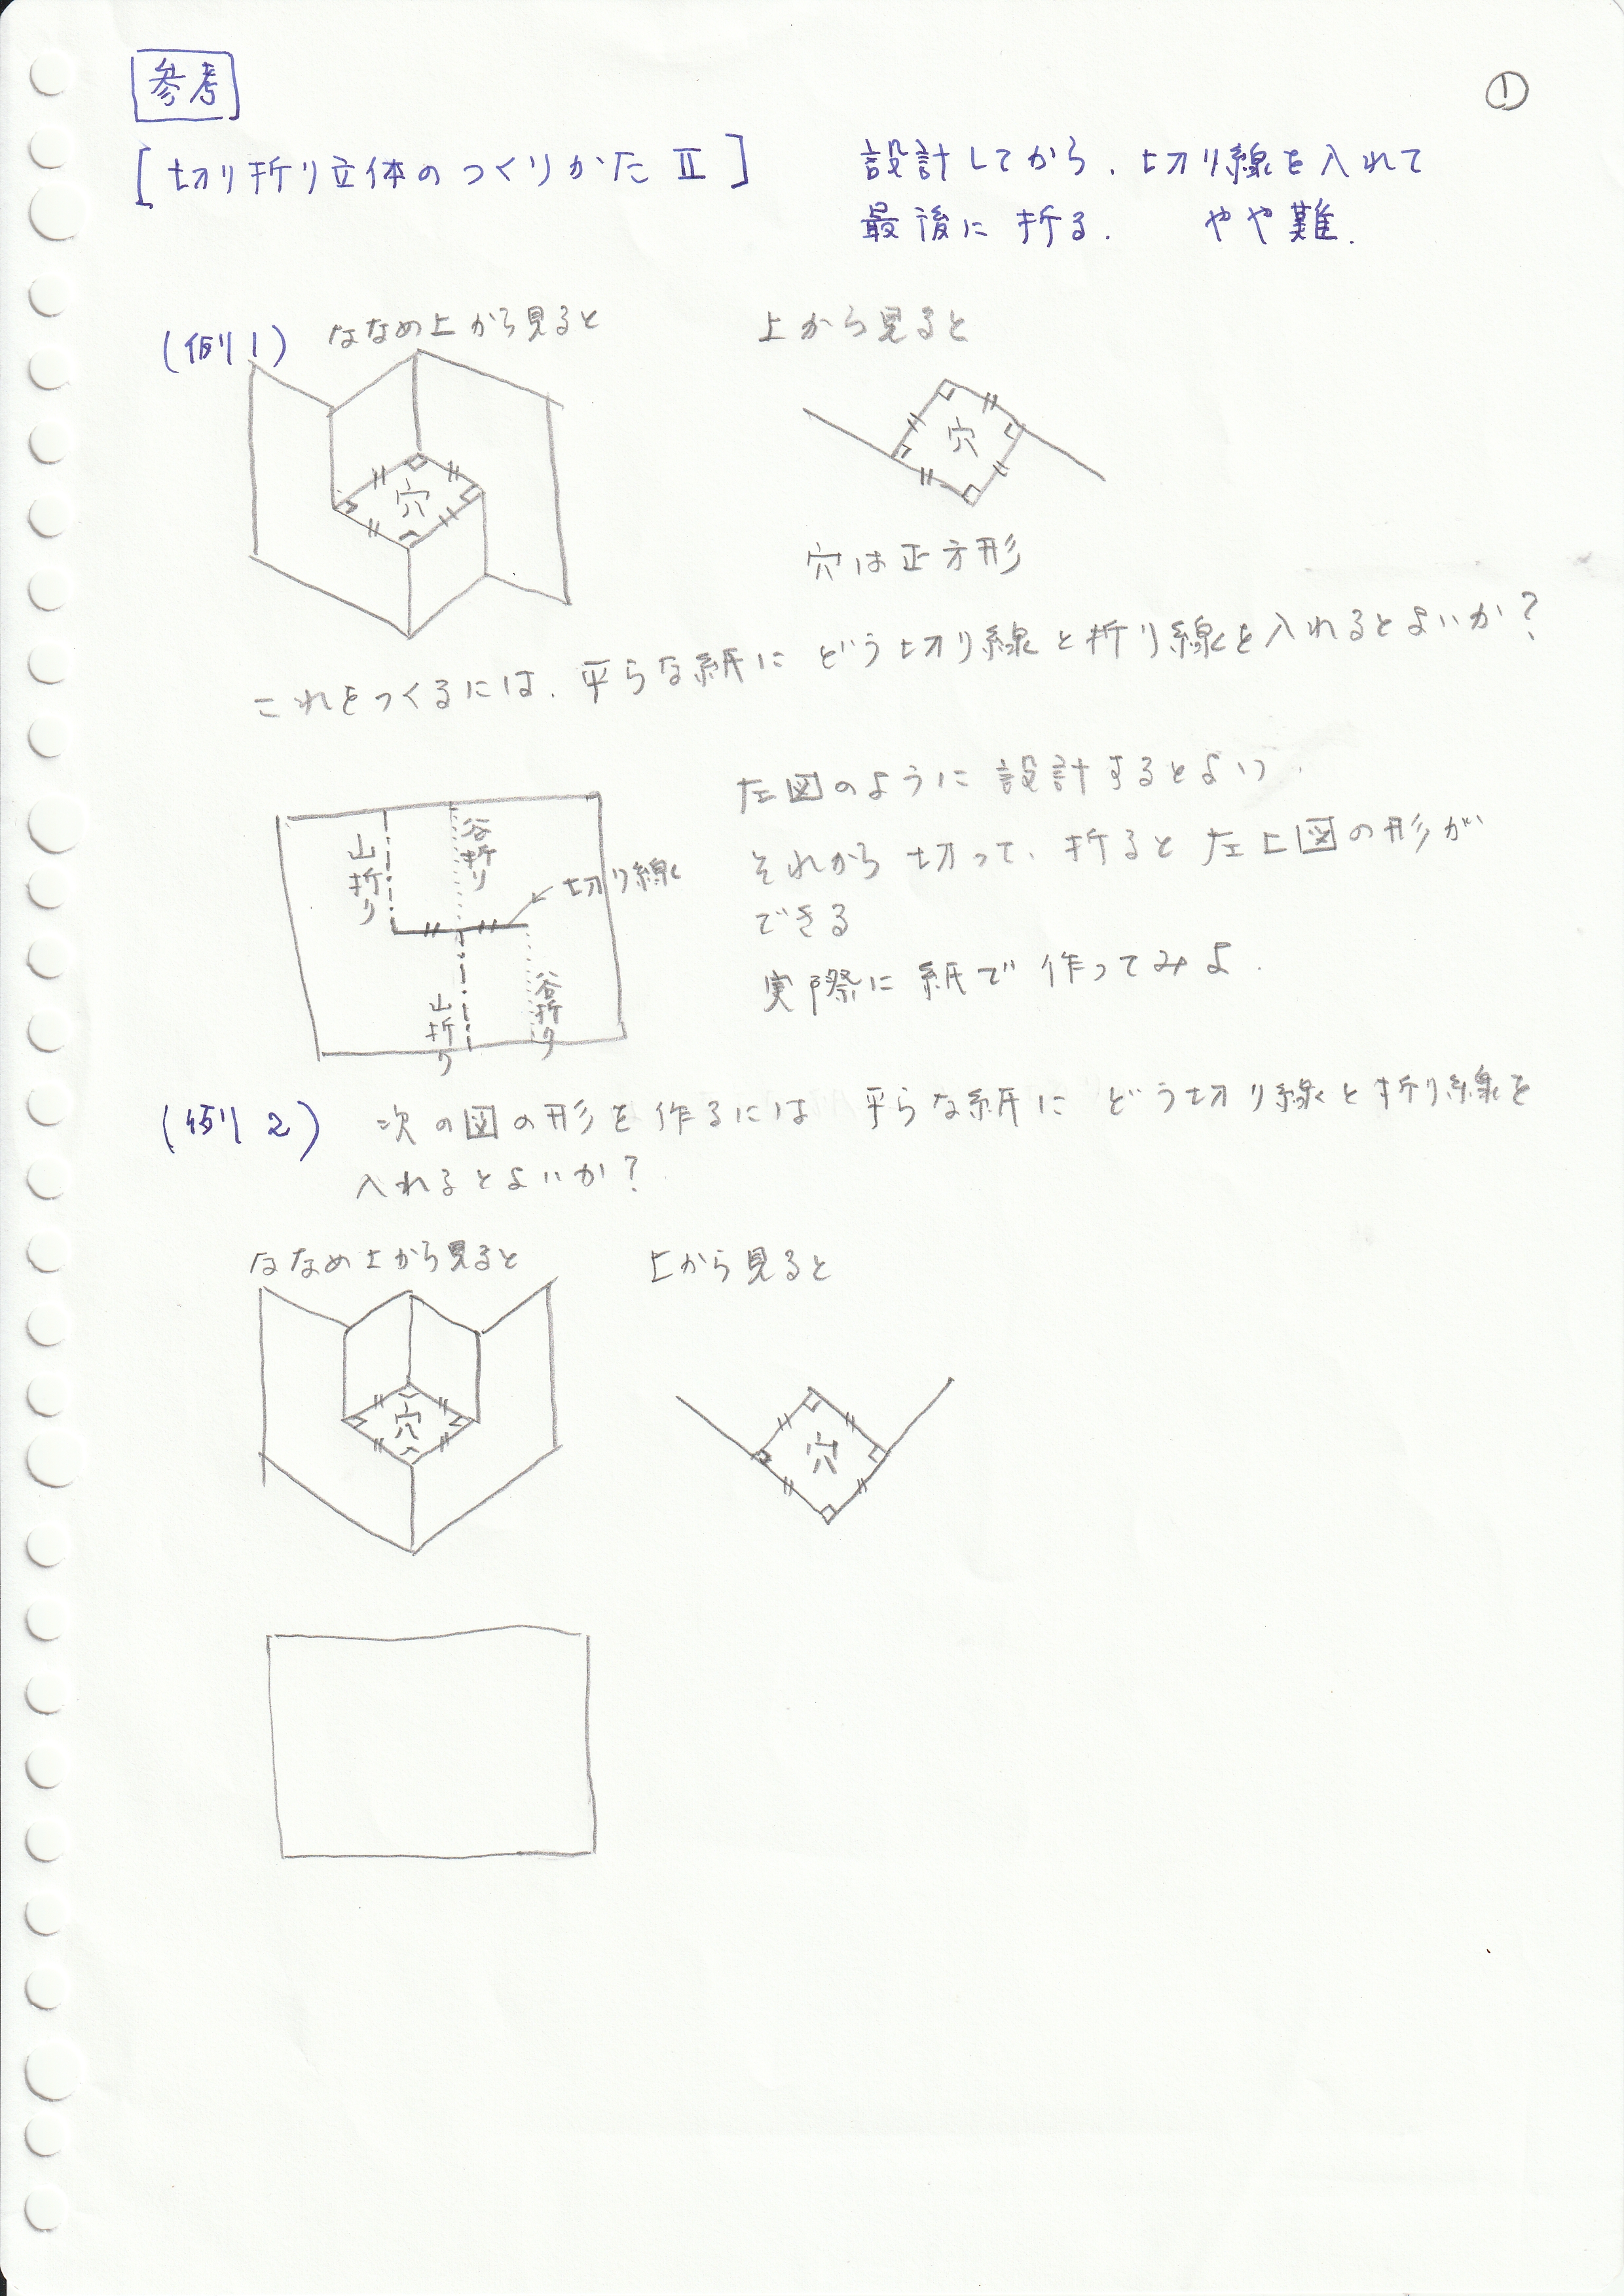 参考
①
[切り折り立体のつくりかた Ⅱ]
設計してから、切り線を入れて
最後に折る. やや難.
(例1) ななめ上から見ると
上から見ると
穴
穴
穴は正方形
これをつくるには、平らな紙にどう切り線と折り線を入れるとよいか?
左図のように設計するとよい.
それから切って、折ると左上図の形が
できる
実際に紙で作ってみよ.
山折り
谷折り
切り線
山折り
谷折り
(例2) 次の図の形を作るには 平らな紙に どう切り線と折り線を
入れるとよいか?
ななめ上から見ると
上から見ると
穴
穴